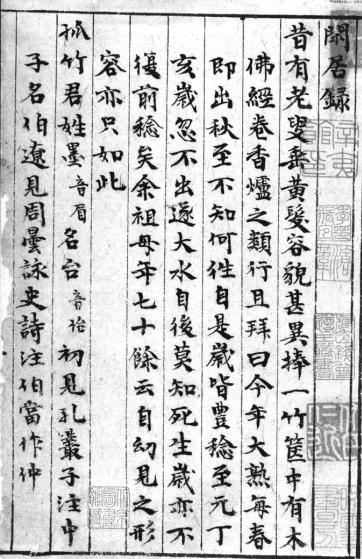 閑居録
昔有老叟垂黄髮容貌甚異捧一竹筐中有木
佛經卷香爐之類行且拜曰今年大熟每春
即出秋至不知何徃自是歲皆豊稔至元丁
亥歲忽不出遂大水自後莫知死生歲亦不
復前稔矣余祖母年七十餘云自幼見之形
容亦只如此
孤竹君姓墨音眉名台音怡初見孔叢子注中
子名伯遼見周曇詠史詩注伯當作仲